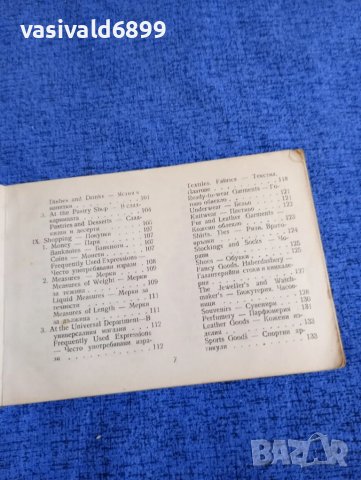 vasivald6899
Dishes and Drinks — Ястия и
напитки . . . . . . 101
3. At the Pastry Shop — В слад-
карницата . . . . . . 104
Pastries and Desserts — Слад-
киши и десерти . . . . 106
IX. Shopping — Покупки . . . 107
1. Money — Пари . . . . 107
Banknotes — Банкноти . . . 107
Coins — Монети . . . . 107
Frequently Used Expressions —
Често употребявани изрази . 108
2. Measures — Мерки . . . 109
Measures of Weight — Мерки
за тежина . . . . . .
Liquid Measures — Мерки за
течности . . . . . .
Measures of Length — Мерки
за дължина . . . . . .
3. At the Universal Department — В
универсалния магазин . . . 112
Frequently Used Expressions
— Често употребявани изра-
зи . . . . . . . . 112
Textiles. Fabrics — Текстил.
Платове . . . . . . 118
Ready-to-wear Garments — Го-
тово облекло . . . . . 121
Underwear — Бельо . . . 121
Knitwear — Плетиво . . .
Fur and Leather Garments —
Кожени облекла . . . .
Shirts. Ties — Ризи.Врато-
връзки . . . . . .
Stockings and Socks — Чо-
рапи . . . . . .
Shoes — Обувки . . . .
Fancy Goods, Haberdashery —
Галантерийни стоки и кинкале-
рия . . . . . .
The Jeweller's and Watch-
maker's — Бижутерия. Часов-
ници . . . . . .
Souvenirs — Сувенири . .
Perfumery — Парфюмерия
Leather Goods — Кожени из-
делия . . . . . . 133
Sports Goods — Спортни ар-
тикули . . . . . . 133
7
BAZAR